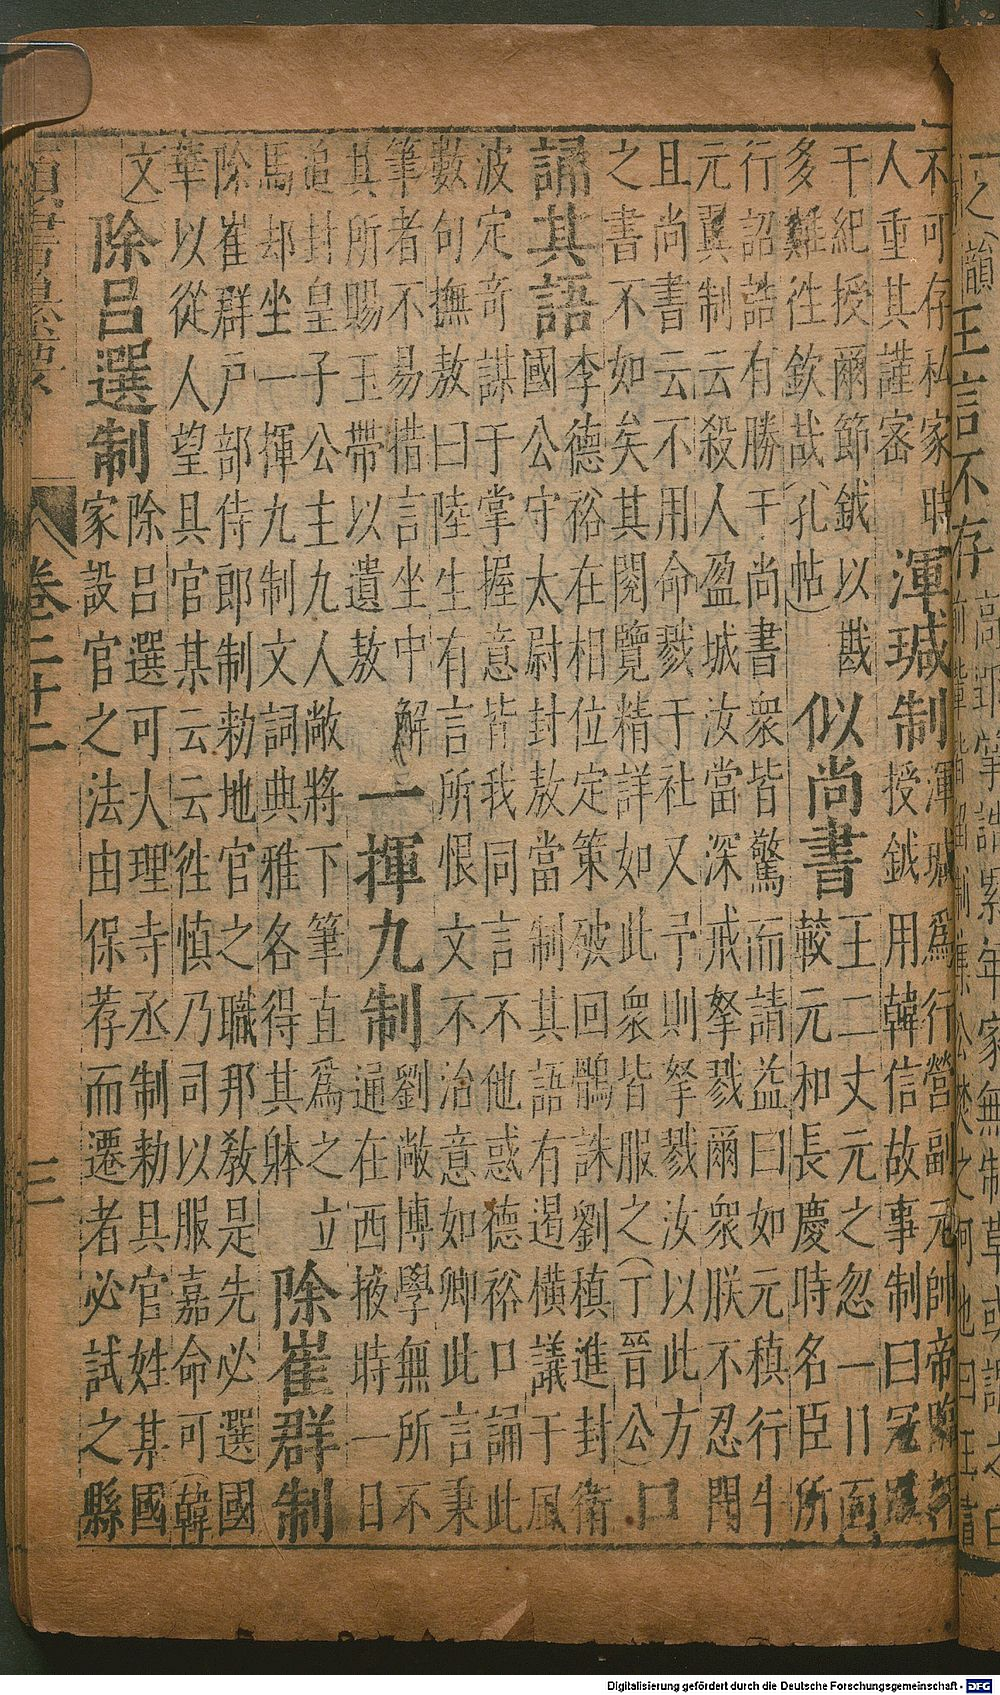 不可存私家時渾瑊制渾瑊爲行營副元帥帝臨軒
人重其謹密授鉞用韓信故事制曰冦
干紀授爾節鉞以戡
多難徃欽哉(孔帖)似尚書較元和長慶時名臣所
行詔誥有勝于尚書衆皆驚而請益曰如元稹行牛
元翼制云殺人盈城汝當深戒孥戮爾衆朕不忍聞
且尚書云不用命戮于社又予則孥戮汝以此方
之書不如矣其閱覽精詳如此衆皆服之(丁晉公)口
誦其語李德裕在相位定策破回鶻誅劉稹進封衛
國公守太尉封敖當制其語有遏橫議于風
波定竒謀于掌握意皆我同言不他惑德裕口誦此
數句撫敖曰陸生有言所恨文不治意如卿此言秉
筆者不易措言坐中解
其所賜玉帶以遺敖一揮九制劉敞博學無所不
通在西掖時一日
追封皇子公主九人敞將下筆直爲之立
馬却坐一揮九制文詞典雅各得其躰除崔群制
除崔群戶部侍郎制勅地官之職邦敎是先必選國
華以從人望具官某云云徃慎乃司以服嘉命可(韓
文)除呂選制除呂選可大理寺丞制勅具官姓某國
家設官之法由保荐而遷者必試之縣
卷二十二
三
王言不存
Digitalisierung gefördert durch die Deutsche Forschungsgemeinschaft - DFG